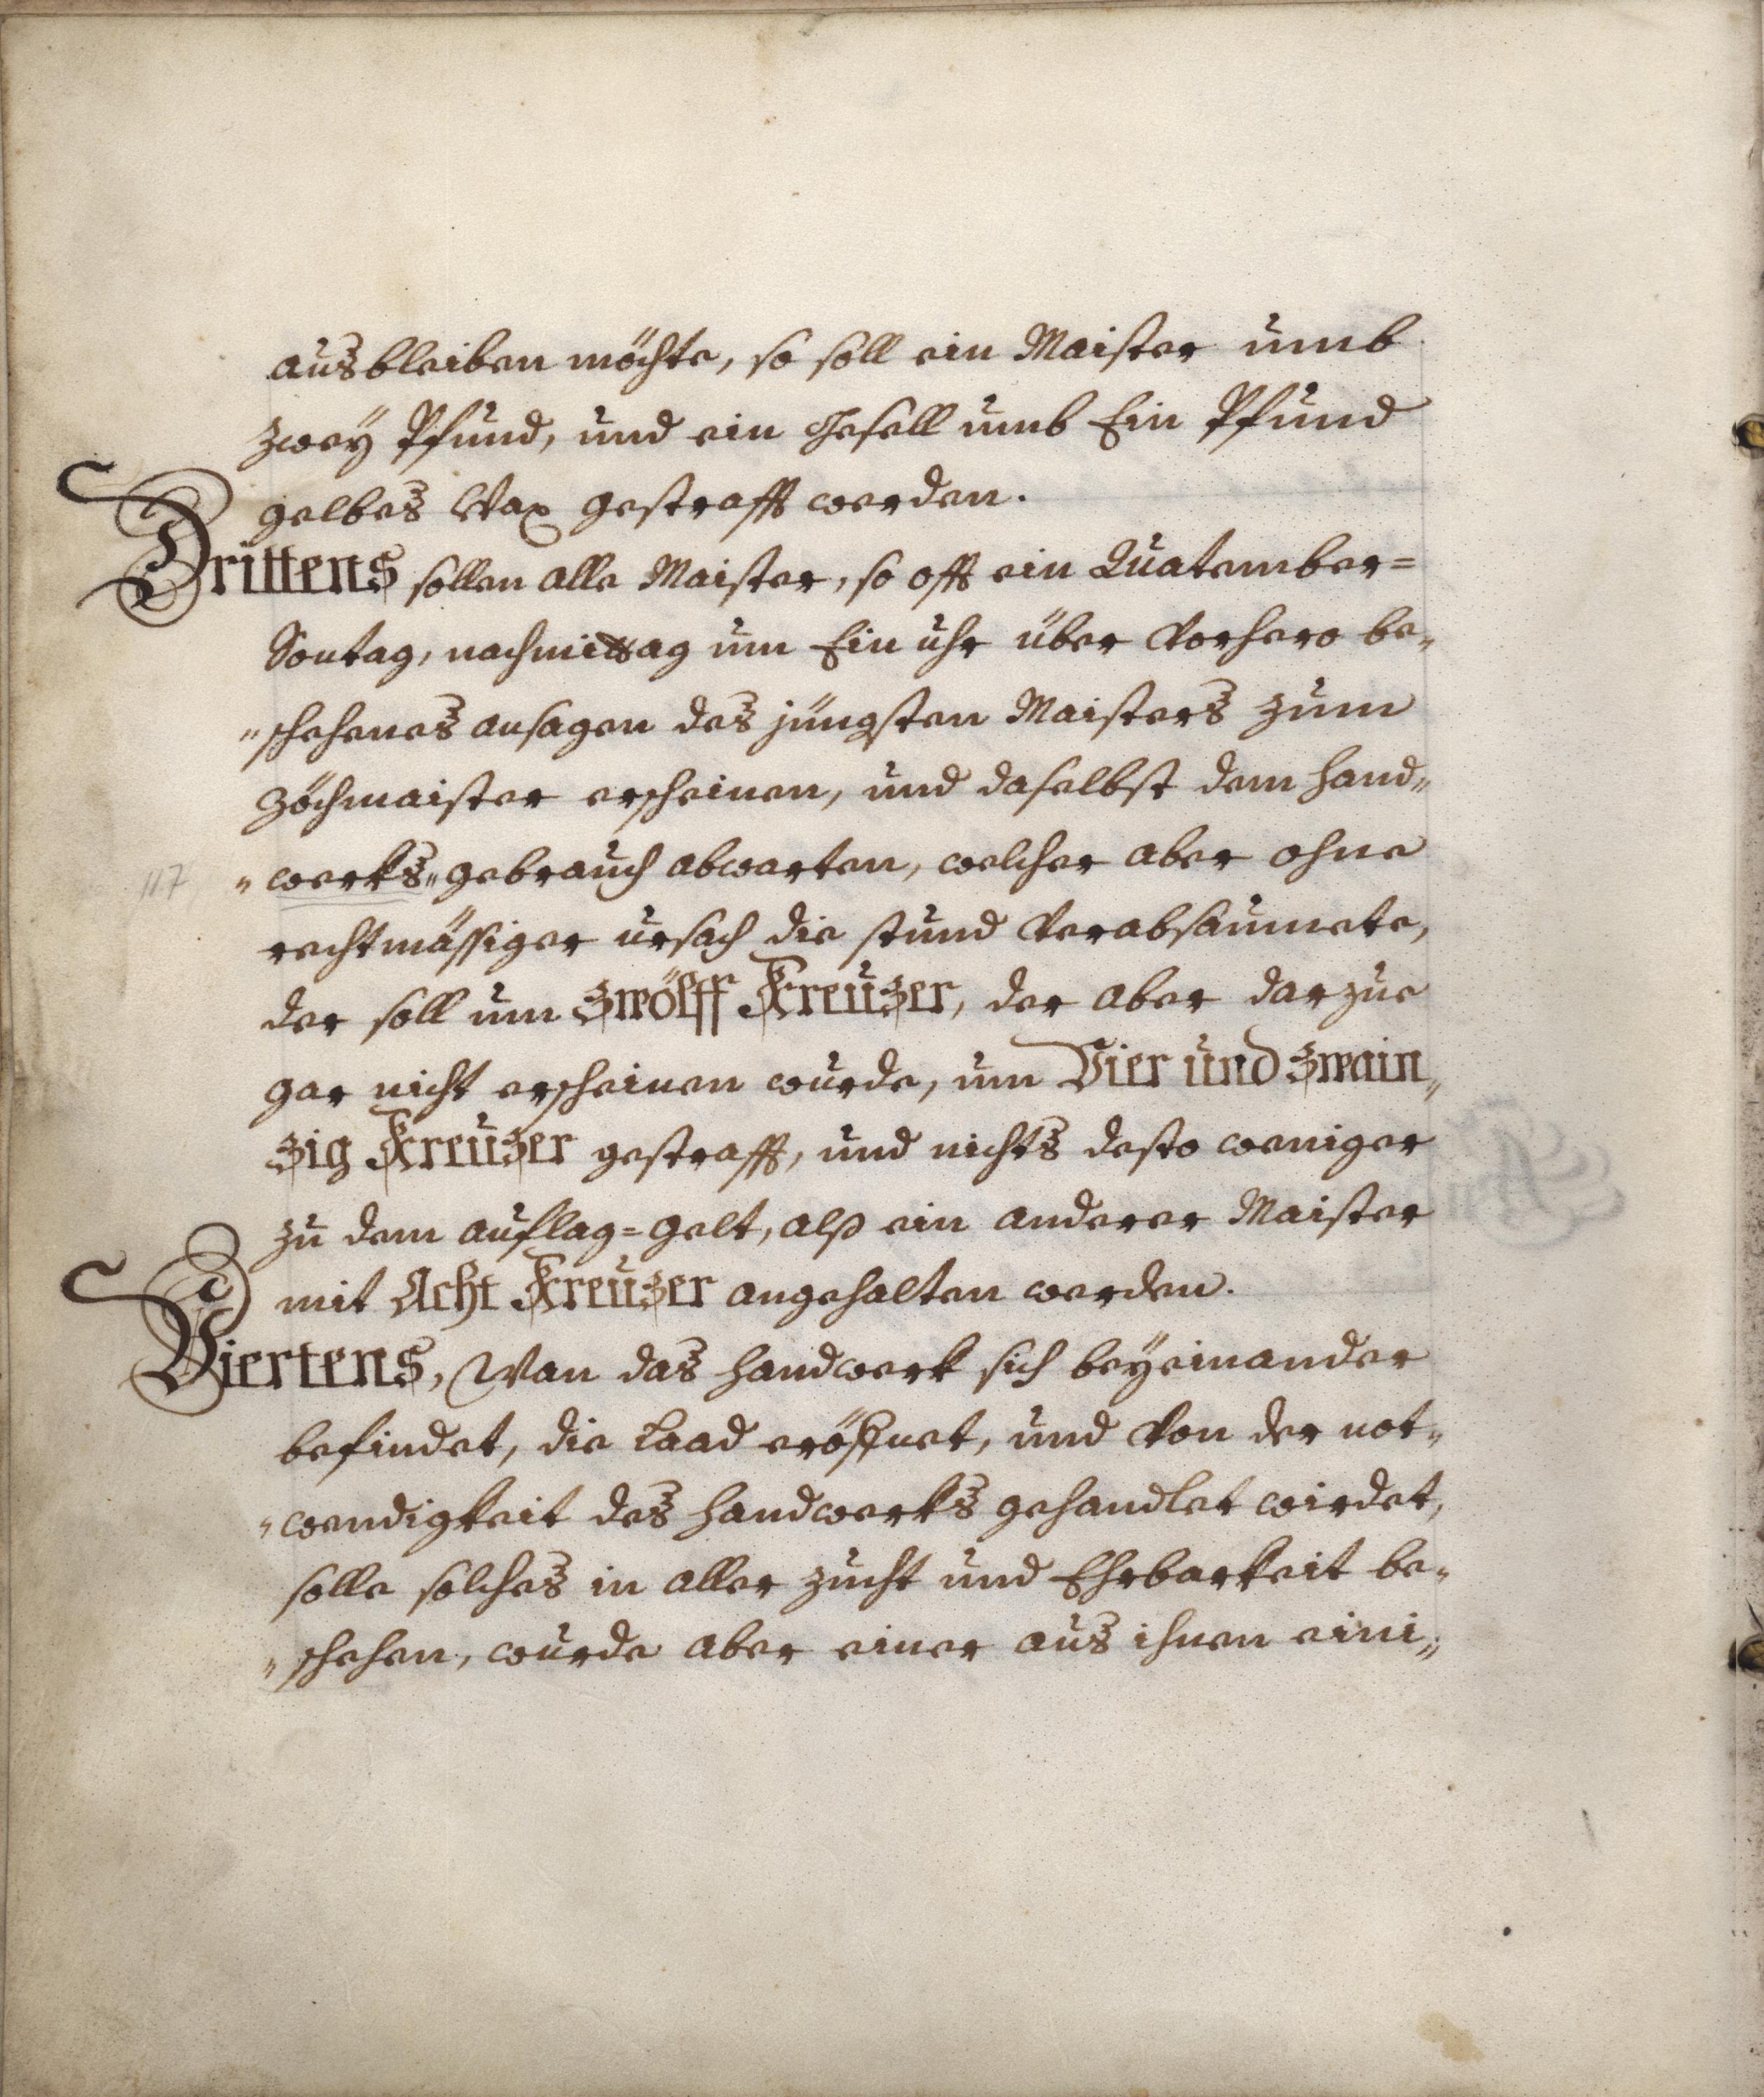 ausbleiben möchte, so soll ein Maister umb
zwey Pfund, und ein Gesell umb Ein Pfund
gelbes Wax gestrafft werden.
Drittens sollen alle Maister, so offt ein Quatember=
Sontag, nachmittag um Ein uhr über vorhero be„
„schehenes ansagen des jüngsten Maisters zum
Zöchmaister erscheinen, und daselbst dem Hand„
117 „werks„gebrauch abwarten, welcher aber ohne
rechtmässiger ursach die stund verabsaumete,
der soll um Zwölff Kreuzer, der aber darzue
gar nicht erscheinen wurde, um Vier und Zwain„
zig Kreuzer gestrafft, und nichts desto weniger
zu dem auflag=gelt, alß ein anderer Maister
mit Acht Kreuzer angehalten werden.
Viertens, Wan das Handwerk sich beyeinander
befindet, die Laad eröffnet, und von der not„
„wendigkeit des Handwerks gehandlet wirdet,
solle solches in aller Zucht und Ehrbarkeit be„
„schehen, wurde aber einer aus ihnen eini„